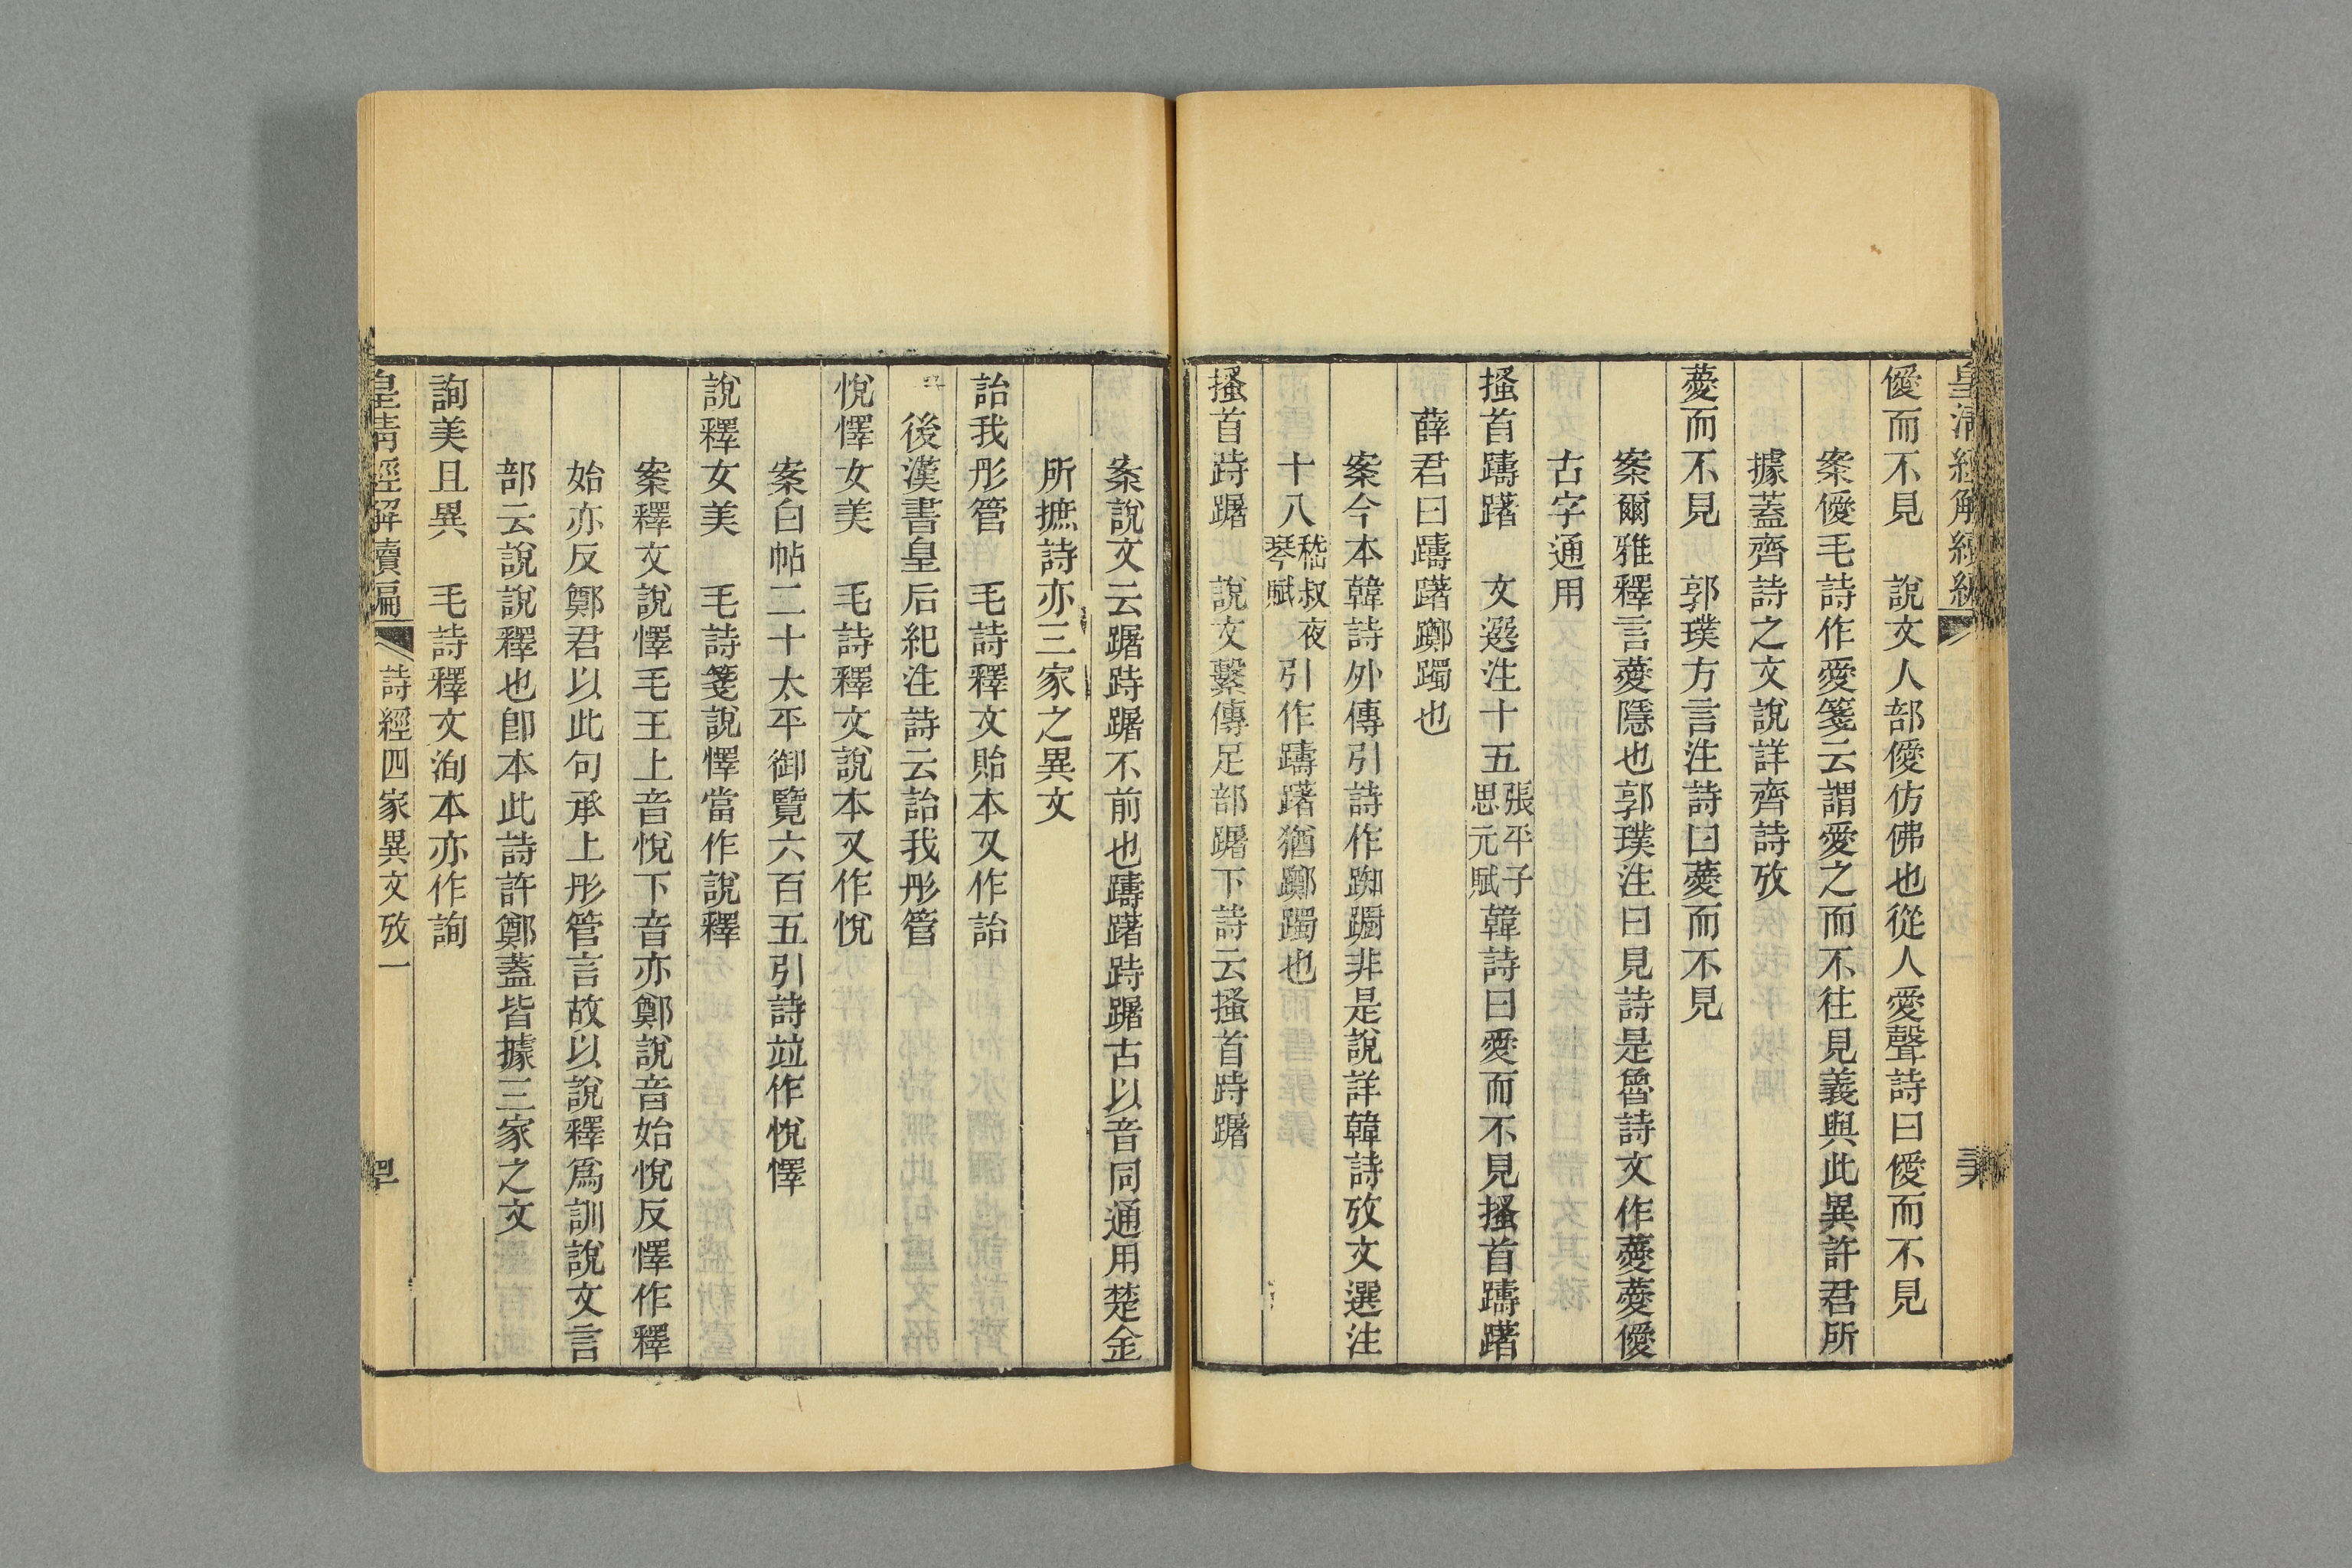 皇清經解續編
僾而不見　說文人部僾仿佛也從人愛聲詩曰僾而不見
案僾毛詩作愛箋云謂愛之而不往見義與此異許君所
據蓋齊詩之文說詳齊詩攷
薆而不見　郭璞方言注詩曰薆而不見
案爾雅釋言薆隱也郭璞注曰見詩是魯詩文作薆薆僾
古字通用
搔首躊躇　文選注十五張平子思元賦韓詩曰愛而不見搔首躊躇
薛君曰躊躇躑躅也
案今本韓詩外傳引詩作踟躕非是說詳韓詩攷文選注
十八嵇叔夜琴賦引作躊躇猶躑躅也
搔首踌躇　說文繫傳足部躇下詩云搔首踌躇
案說文云躇踌躇不前也躊躇踌躇古以音同通用楚金
所摭詩亦三家之異文
詒我彤管　毛詩釋文貽本又作詒
後漢書皇后紀注詩云詒我彤管
悅懌女美　毛詩釋文說本又作悅
案白帖二十太平御覽六百五引詩竝作悅懌
說釋女美　毛詩箋說懌當作說釋
案釋文說懌毛王上音悅下音亦鄭說音始悅反懌作釋
始亦反鄭君以此句承上彤管言故以說釋爲訓說文言
部云說說釋也卽本此詩許鄭蓋皆據三家之文
詢美且異　毛詩釋文洵本亦作詢
皇清經解續編　詩經四家異文攷一